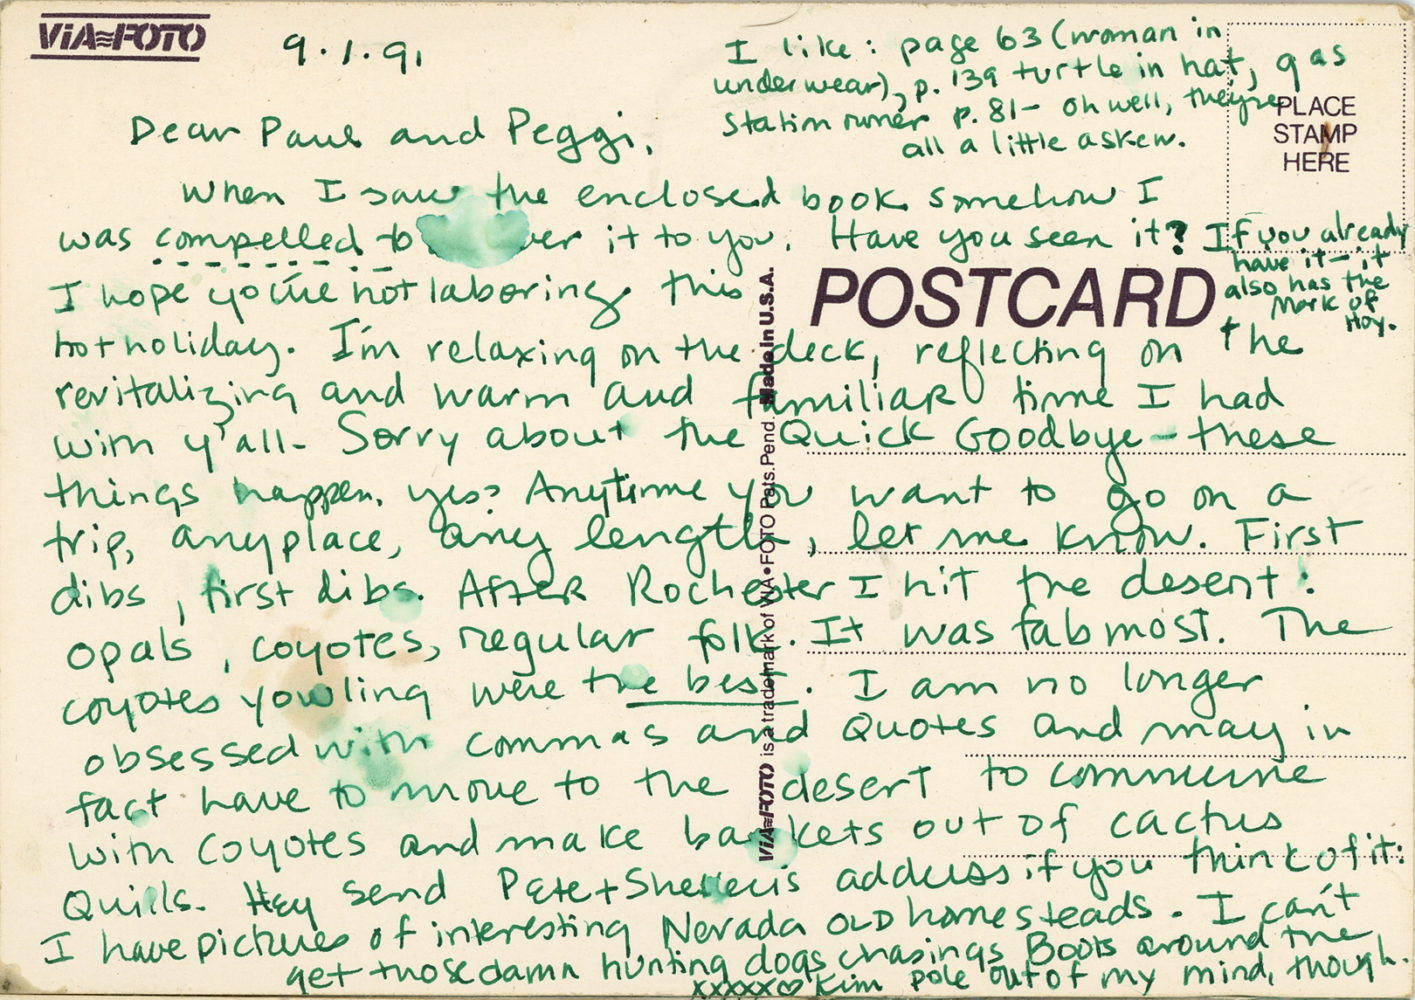 ViA≈FOTO
9.1.91
I like: page 63 (woman in
underwear), p. 139 turtle in hat, gas
station runner p. 81- oh well, they're
all a little askew.
PLACE
STAMP
HERE
Dear Paul and Peggi,
When I saw the enclosed book somehow I
was compelled to ver it to you. Have you seen it? If you already
have it - it
also has the
Mark of
Hoy.
POSTCARD
I hope you're not laboring this
hot holiday. I'm relaxing on the deck, reflecting on the
revitalizing and warm and familiar time I had
with y'all- Sorry about the Quick Goodbye - these
things happen, yes? Anytime you want to go on a
trip, anyplace, any length, let me know. First
dibs, first dibs. After Rochester I hit the desert:
opals, coyotes, regular folk. It was fabmost. The
coyotes yowling were the best. I am no longer
obsessed with commas and Quotes and may in
fact have to move to the desert to commune
with coyotes and make baskets out of cactus
Quills. Hey send Pete + address if you think of it:
I have pictures of interesting Nevada old homesteads. I can't
get those damn hunting dogs chasing Boots around the
pole out of my mind, though.
xxxxx♡ Kim
ViA≈FOTO is a trademark of VIA•FOTO Pats.Pend. Made in U.S.A.